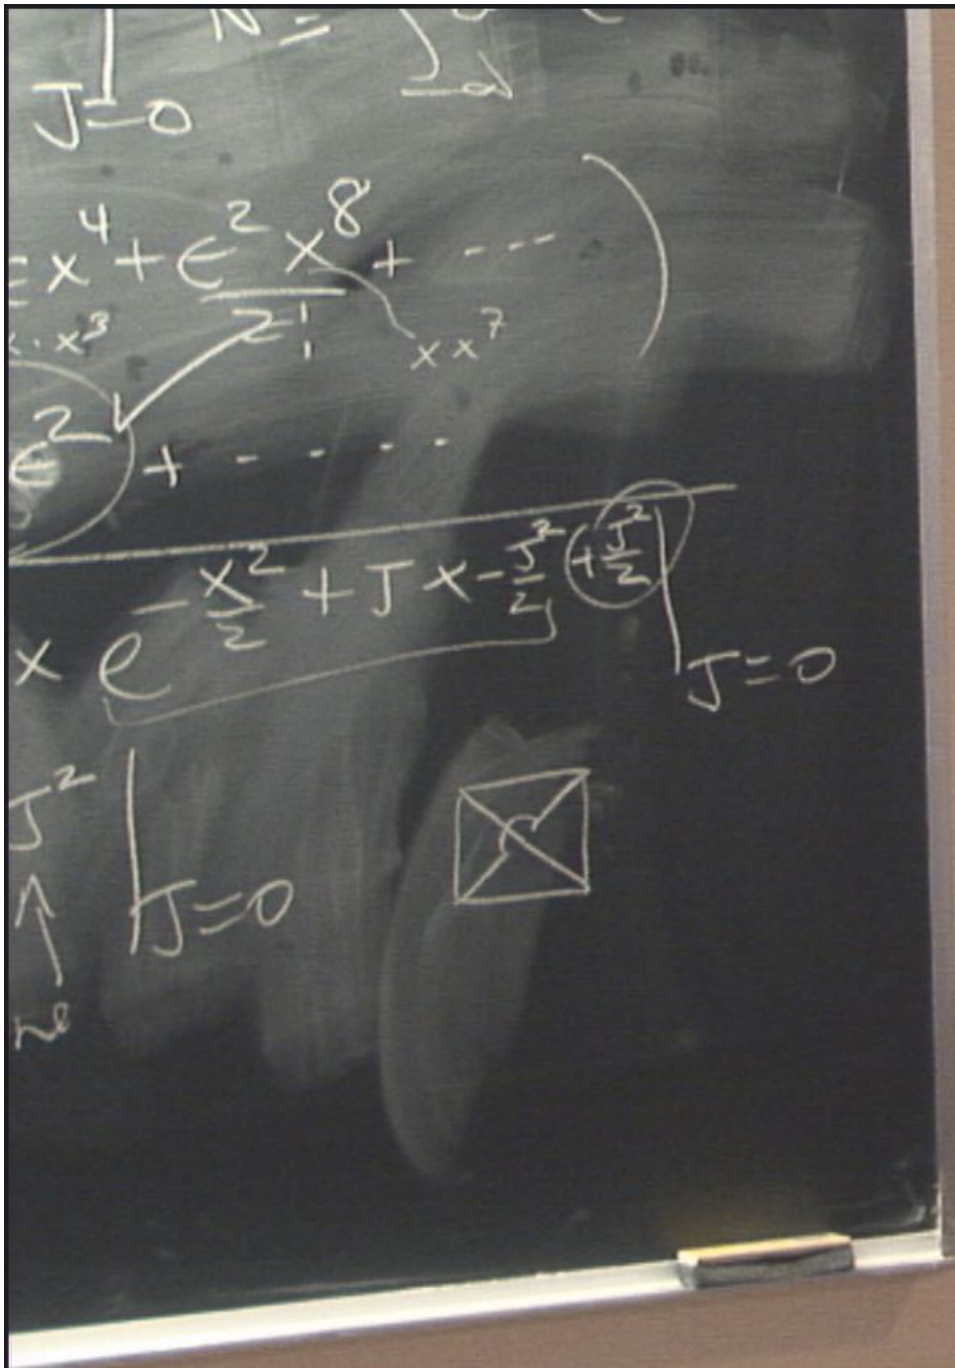 J=0 N =
∈x⁴ + ∈² x⁸ / 2! + ---
x · x³ x x⁷
∈² + - - - -
x e^{-x²/2 + Jx - J²/2 + J²/2} | J=0
J² | J=0